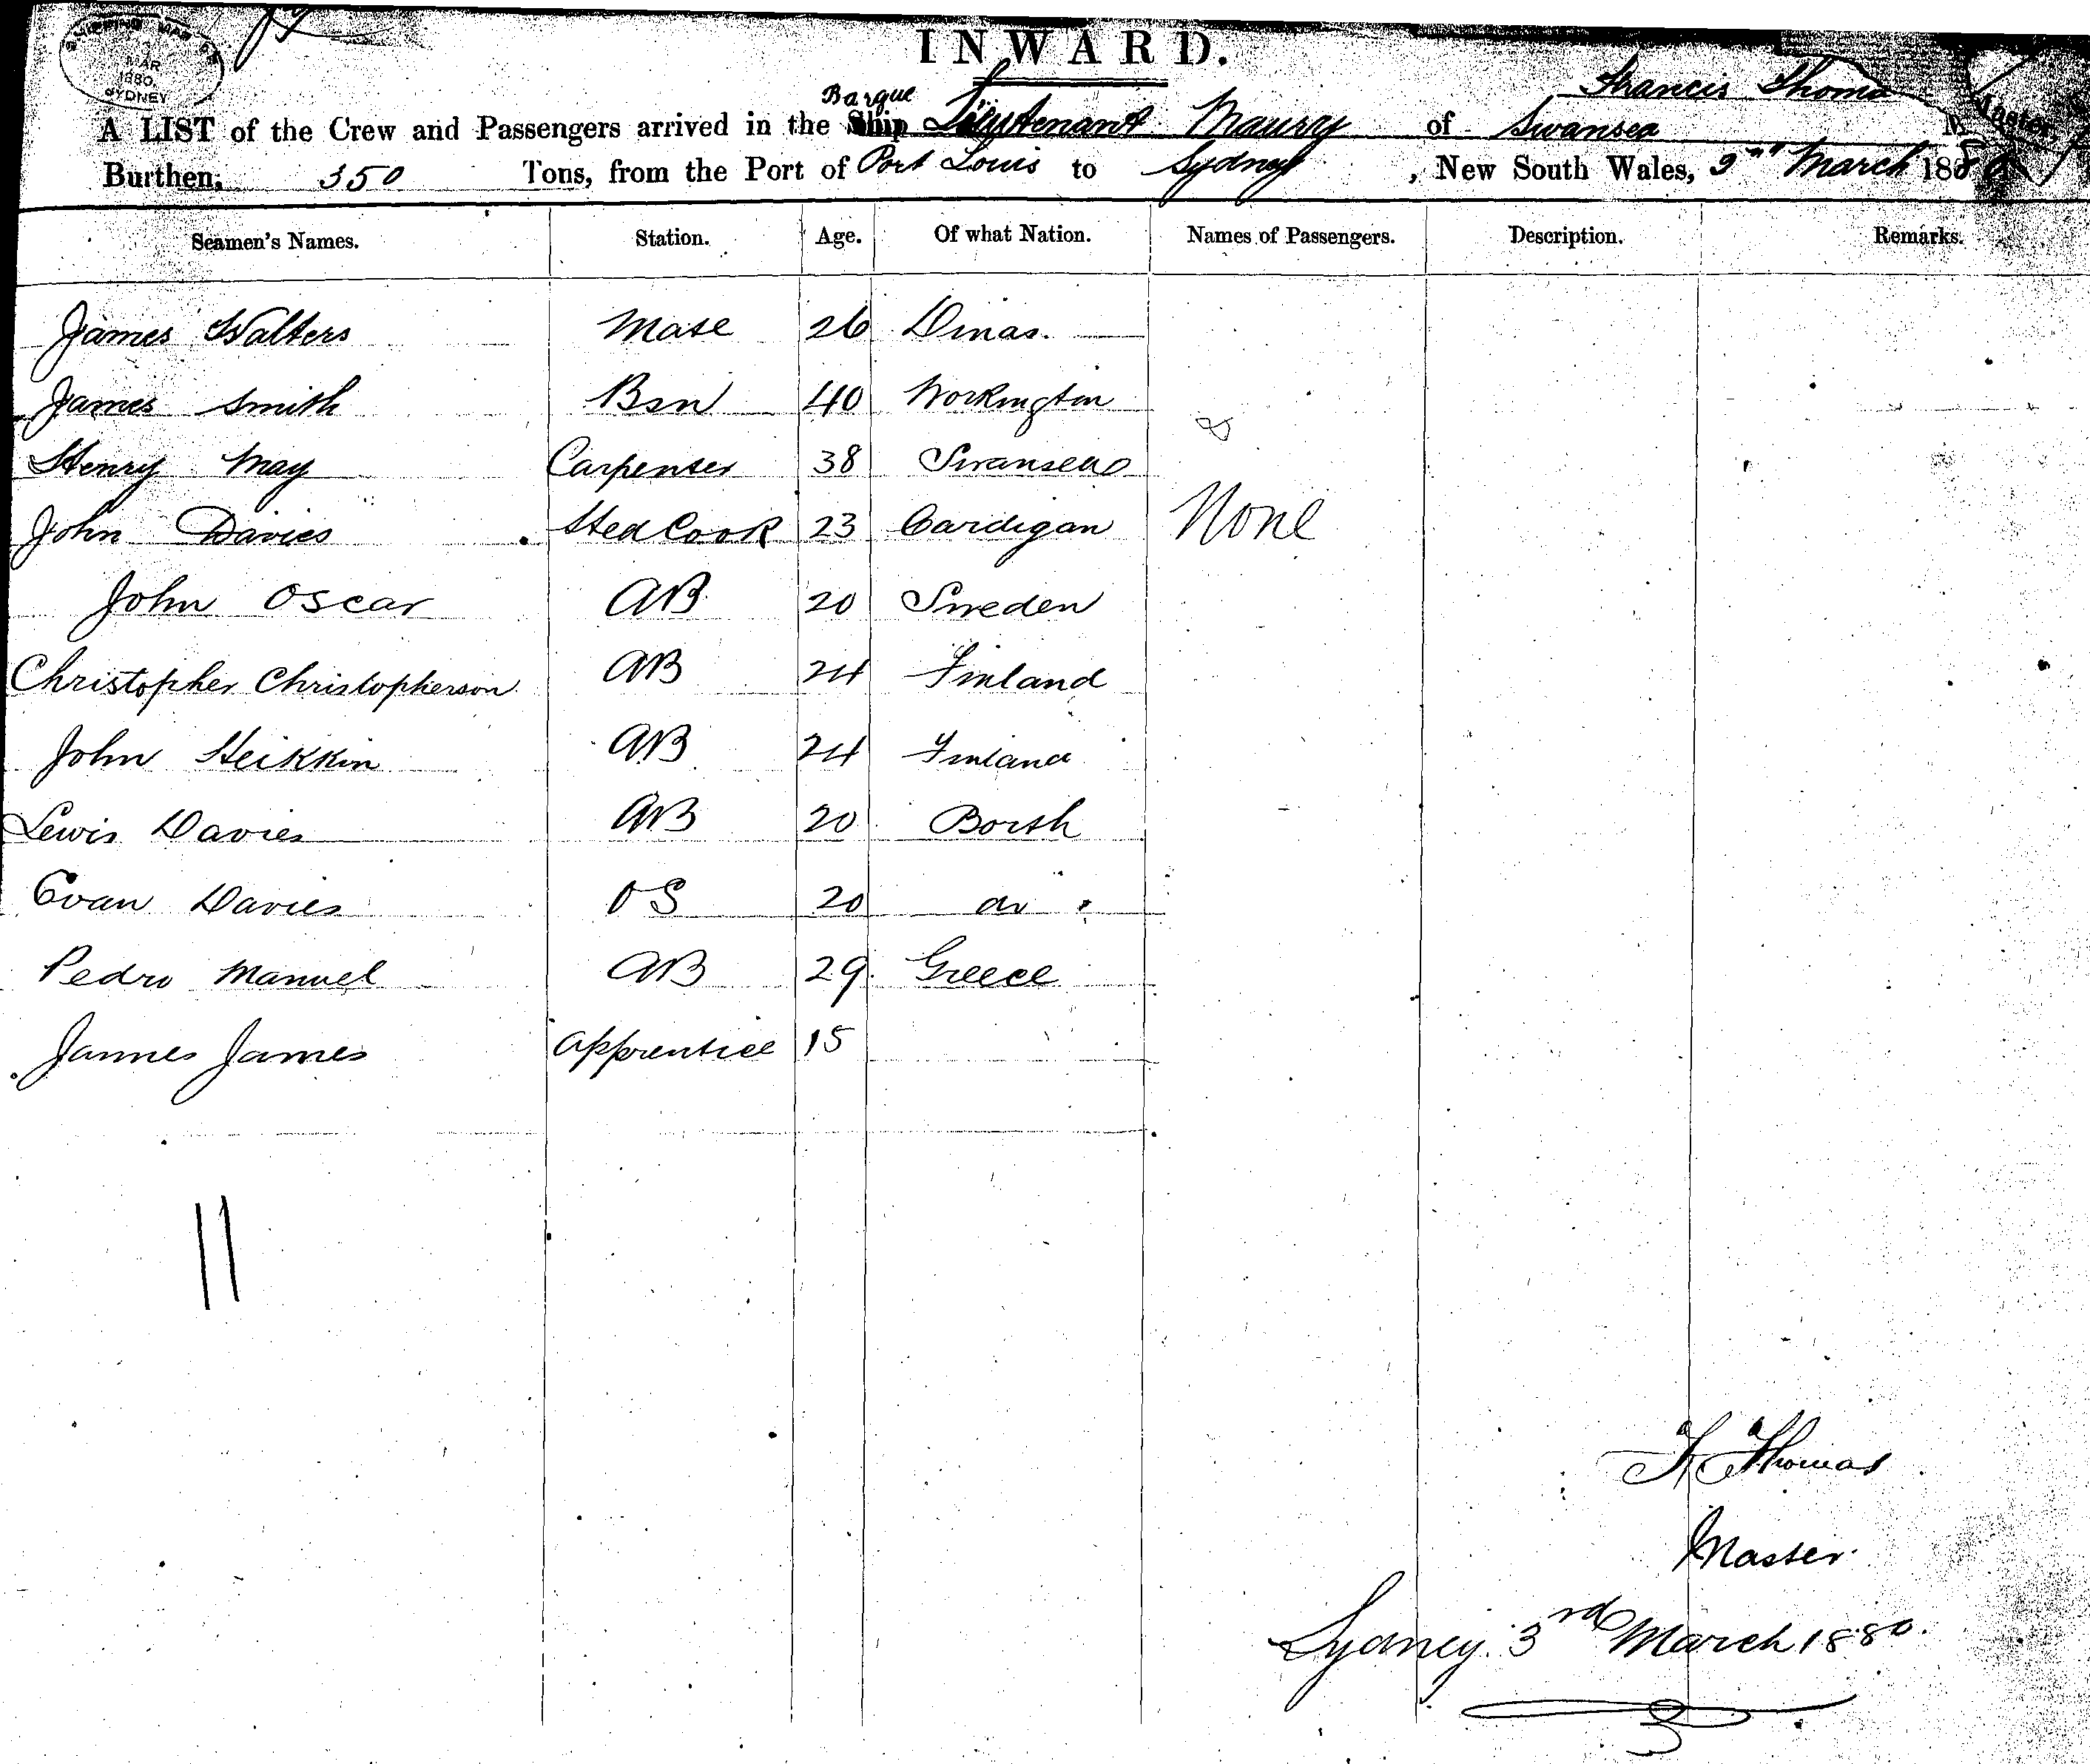 SHIPPING MAS
3
MAR
1880
SYDNEY
INWARD.
Francis Thomas
Barque
A LIST of the Crew and Passengers arrived in the Ship Lieutenant Maury of Swansea Master
Burthen, 350 Tons, from the Port of Port Louis to Sydney, New South Wales, 3rd March 1880
Seamen's Names. Station. Age. Of what Nation. Names of Passengers. Description. Remarks.
James Walters Mate 26 Dinas.
James Smith Bsn 40 Workington
&
Henry May Carpenter 38 Swansea
John Davies Sted Cook 23 Cardigan None
John Oscar AB 20 Sweden
Christopher Christopherson AB 24 Finland
John Heikkin AB 24 Finland
Lewis Davies AB 20 Borth
Evan Davies OS 20 do
Pedro Manuel AB 29 Greece
James James apprentice 15
11
F Thomas
Master
Sydney 3rd March 1880.